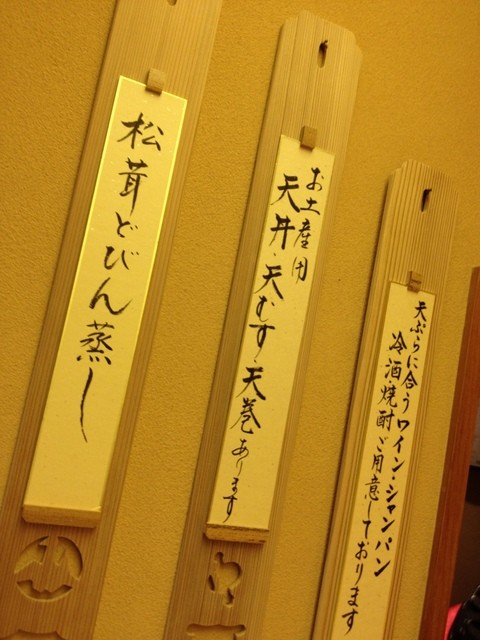 松茸どびん蒸し
お土産用
天丼・天むす・天巻あります
天ぷらに合うワイン・シャンパン
冷酒・焼酎ご用意しております